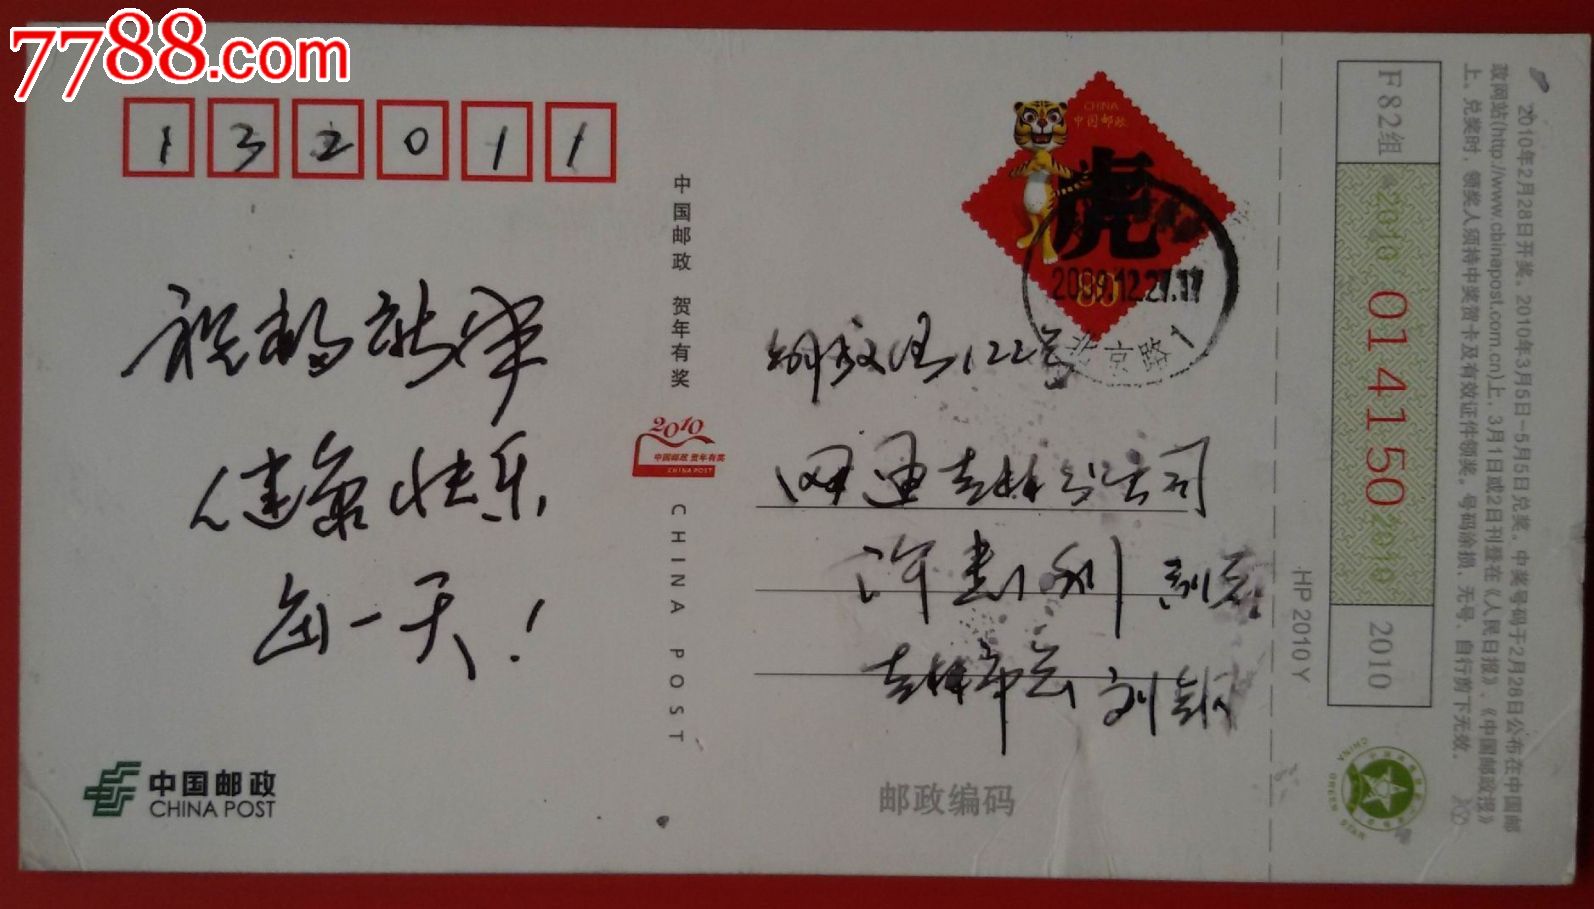 7788.com
132011
CHINA
中国邮政
虎
80
2009.12.27.17
北京路1
祝福新年
健康快乐
每一天!
122号
网通吉林分公司
许
吉林市
刘
中国邮政 贺年有奖
2010
中国邮政 贺年有奖
CHINA POST
CHINA POST
中国邮政
CHINA POST
邮政编码
HP 2010Y
F82组
2010 014150 2010
2010
CHINA GREEN STAR
2010年2月28日开奖。2010年3月5日-5月5日兑奖。中奖号码于2月28日公布在中国邮
政网站(http://www.chinapost.com.cn)上,3月1日或2日刊登在《人民日报》、《中国邮政报》
上。兑奖时,领奖人须持中奖贺卡及有效证件领奖。号码涂损、无号、自行剪下无效。